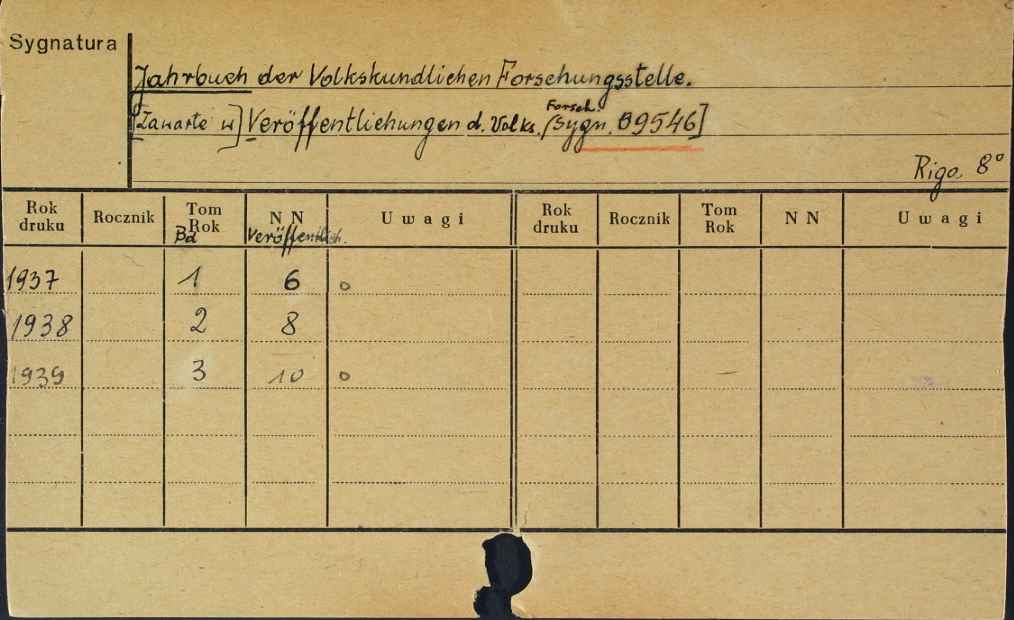 Sygnatura
Jahrbuch der Volkskundlichen Forschungsstelle.
[Zawarte w] Veröffentlichungen d. Volks. Forsch. (Sygn. B9546]
Riga 8°
Rok druku Rocznik Tom Rok Bd NN Veröffentlich. Uwagi Rok druku Rocznik Tom Rok NN Uwagi
1937 1 6 o
1938 2 8
1939 3 10 o